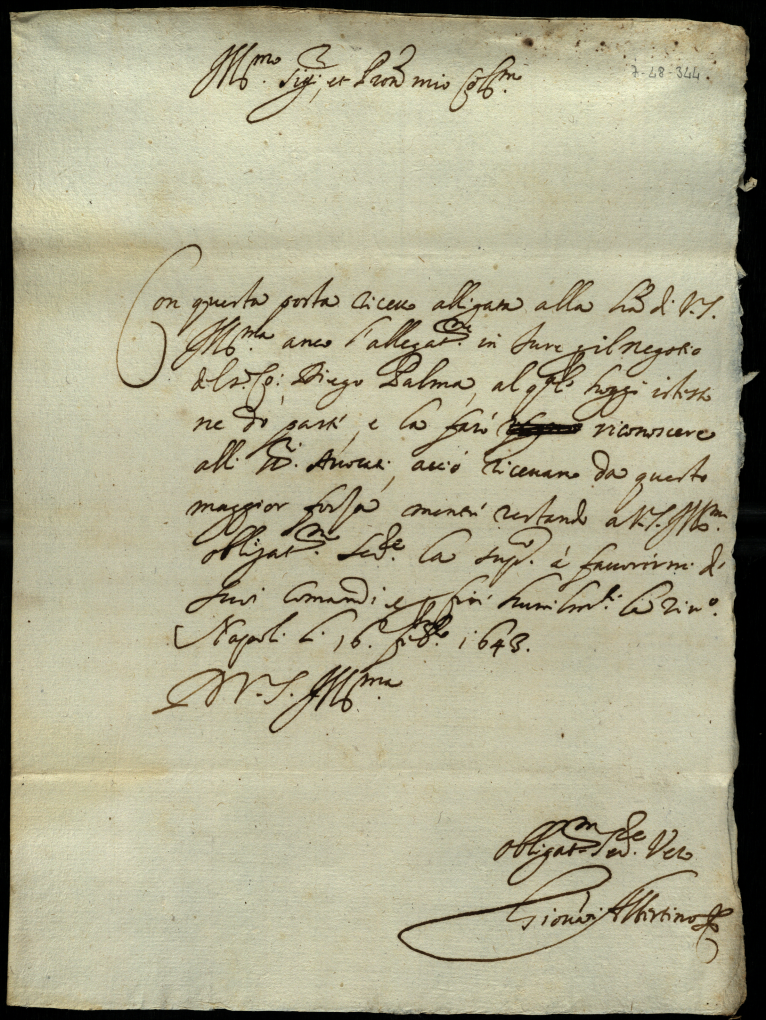 Ill.mo Sig.r et Pron mio Col.mo
7-48-344.
Con questa posta ricevo alligata alla di V.S.
Ill.ma anco l'allegat.ne in Iure pil negotio
del s.r Diego Palma, al q.le hoggi istesso
ne dò parte, e la farò riconoscere
alli ss.ri Avocati, acciò ricevano da questo
maggior forza mentre restando a V.S. Ill.ma
obligat.mo ser.re la sup.co à favorirmi de
suoi comandi, e p fine humilm.te la riv.o
Napoli li 16. feb.ro 1643.
D V.S. Ill.ma
Obligat.mo Ser.re Vero
Giovani Albertino